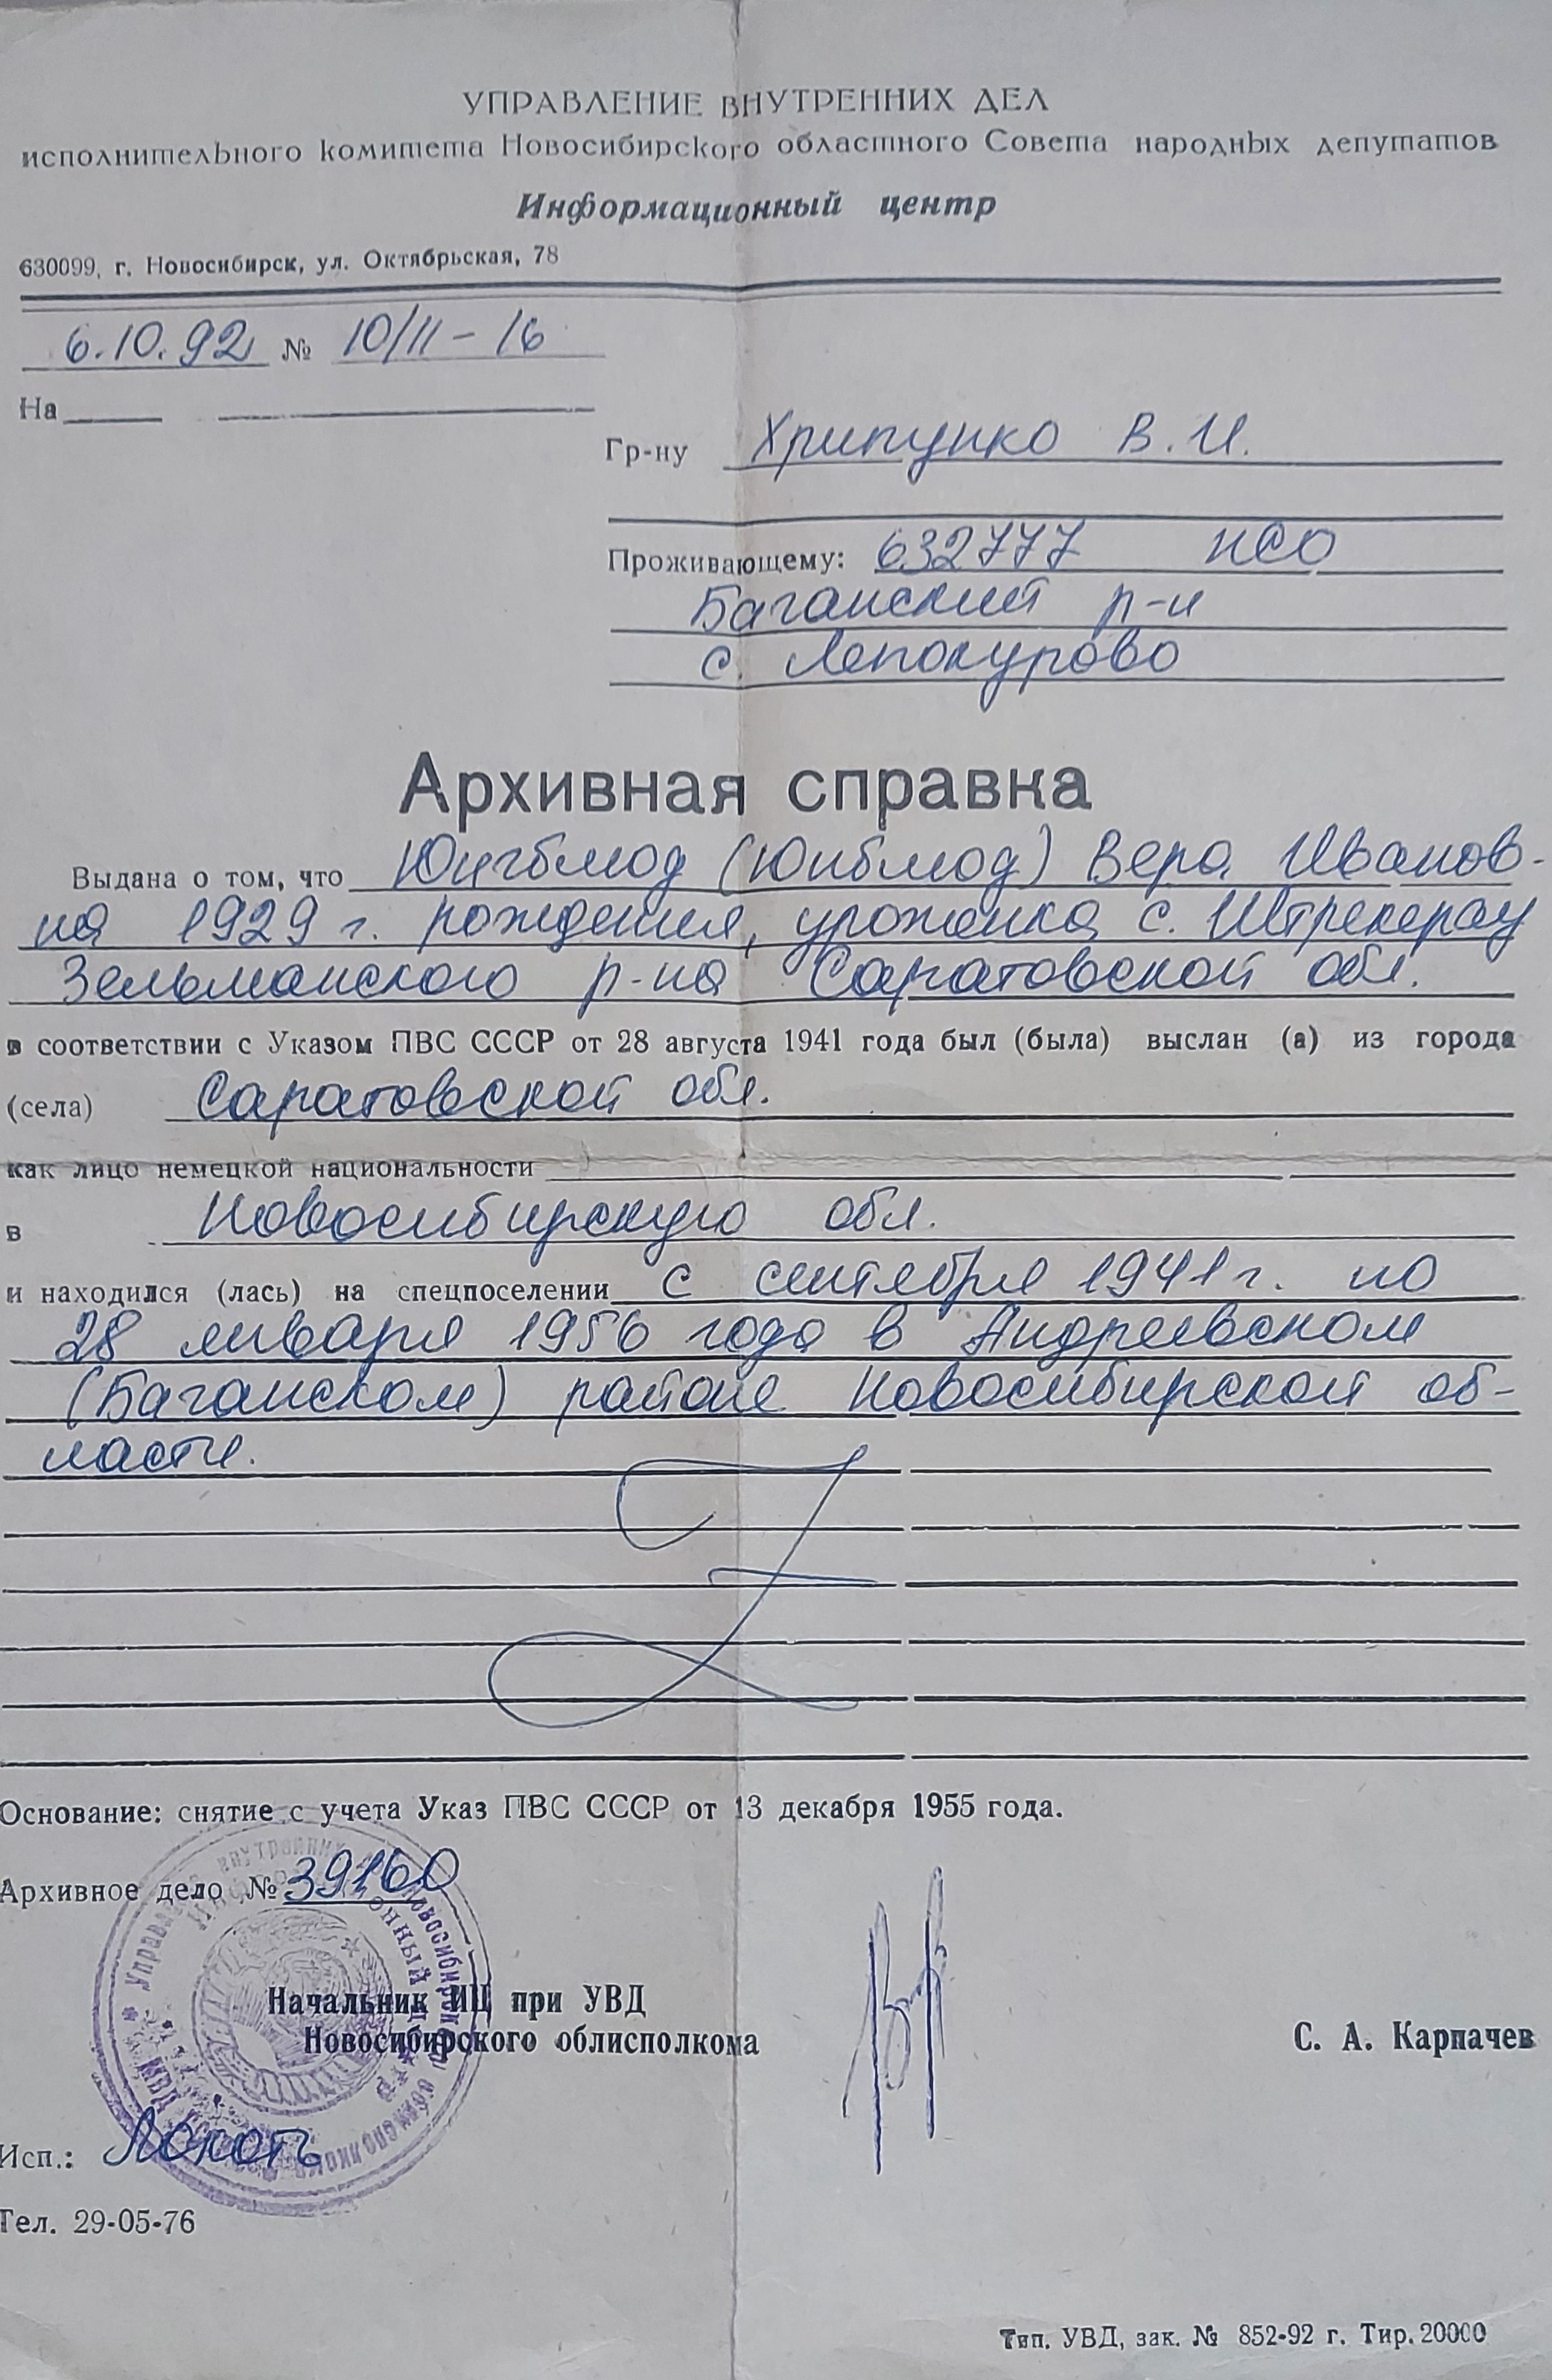 УПРАВЛЕНИЕ ВНУТРЕННИХ ДЕЛ
исполнительного комитета Новосибирского областного Совета народных депутатов
Информационный центр
630099, г. Новосибирск, ул. Октябрьская, 78
6.10.92 № 10/11-16
На
Гр-ну Хрипунко В. И.
Проживающему: 632777 НСО
Баганский р-н
с. Лепокурово
Архивная справка
Выдана о том, что Юнгблюд (Юнблюд) Вера Иванов-
на 1929 г. рождения, уроженка с. Штрекерау
Зельманского р-на Саратовской обл.
в соответствии с Указом ПВС СССР от 28 августа 1941 года был (была) выслан (а) из города
(села) Саратовской обл.
как лицо немецкой национальности
в Новосибирскую обл.
и находился (лась) на спецпоселении с сентября 1941 г. по
28 января 1956 года в Андреевском
(Баганском) районе Новосибирской об-
ласти.
Основание: снятие с учета Указ ПВС СССР от 13 декабря 1955 года.
Архивное дело № 39160
Начальник ИЦ при УВД
Новосибирского облисполкома
С. А. Карпачев
Исп.: Локоть
Тел. 29-05-76
Тип. УВД, зак. № 852-92 г. Тир. 20000